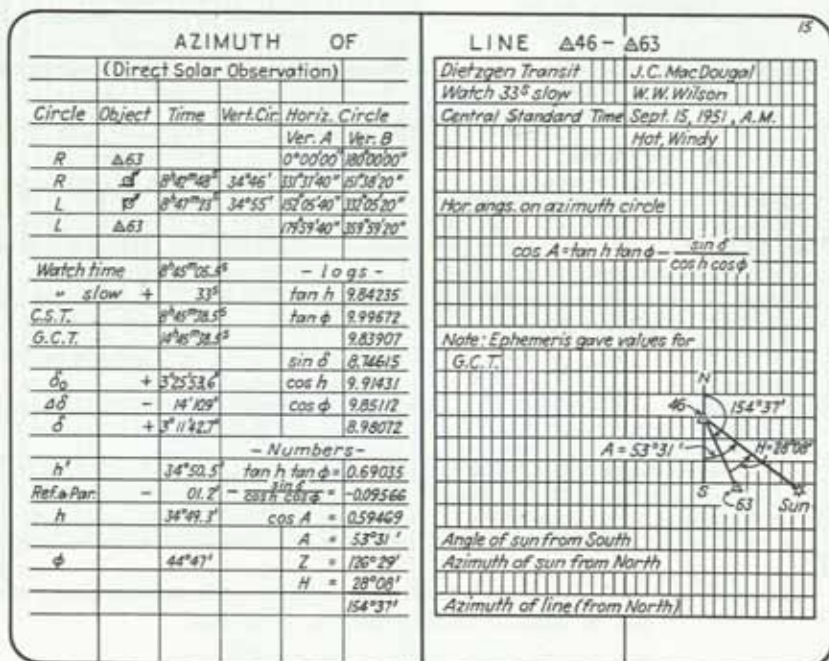 15
AZIMUTH OF
(Direct Solar Observation)
Circle Object Time Vert.Cir. Horiz. Circle
Ver. A Ver. B
R △63 0°00'00" 180°00'00"
R 8ʰ42ᵐ48ˢ 34°46' 331°37'40" 151°38'20"
L 8ʰ47ᵐ23ˢ 34°55' 152°05'40" 332°05'20"
L △63 179°59'40" 359°59'20"
Watch time 8ʰ45ᵐ05.5ˢ – logs –
" slow + 33ˢ tan h 9.84235
C.S.T. 8ʰ45ᵐ38.5ˢ tan φ 9.99672
G.C.T. 14ʰ45ᵐ38.5ˢ 9.83907
sin δ 8.74615
δ₀ + 3°25'53.6" cos h 9.91431
Δδ – 14'10.9" cos φ 9.85112
δ + 3°11'42.7" 8.98072
– Numbers –
h' 34°50.5' tan h tan φ = 0.69035
Ref.& Par. – 01.2' – sin δ / cos h cos φ = -0.09566
h 34°49.3' cos A = 0.59469
A = 53°31'
φ 44°47' Z = 126°29'
H = 28°08'
154°37'
LINE △46 – △63
Dietzgen Transit J.C. MacDougal
Watch 33ˢ slow W.W. Wilson
Central Standard Time Sept. 15, 1951, A.M.
Hot, Windy
Hor angs. on azimuth circle
cos A = tan h tan φ – sin δ / cos h cos φ
Note: Ephemeris gave values for
G.C.T.
N
46 154°37'
A = 53°31' H=28°08'
S 63 Sun
Angle of sun from South
Azimuth of sun from North
Azimuth of line (from North)